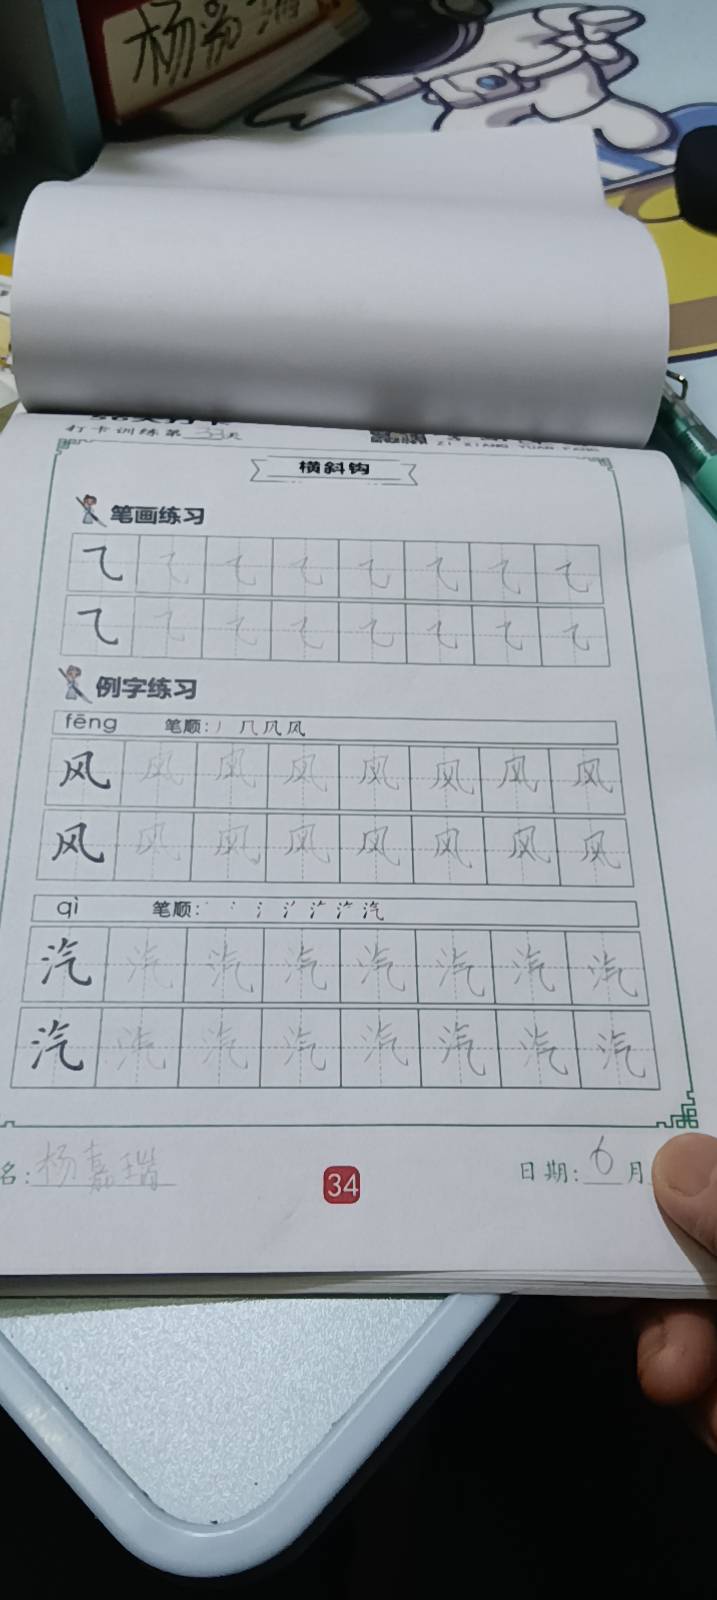 杨嘉
打卡训练第33天
横斜钩
笔画练习
㇈ ㇈ ㇈ ㇈ ㇈ ㇈ ㇈ ㇈
㇈ ㇈ ㇈ ㇈ ㇈ ㇈ ㇈ ㇈
例字练习
fēng 笔顺:丿 几 风 风
风 风 风 风 风 风 风 风
风 风 风 风 风 风 风 风
qì 笔顺: 汽
汽 汽 汽 汽 汽 汽 汽 汽
汽 汽 汽 汽 汽 汽 汽 汽
名:杨嘉瑙
34
日期:6月